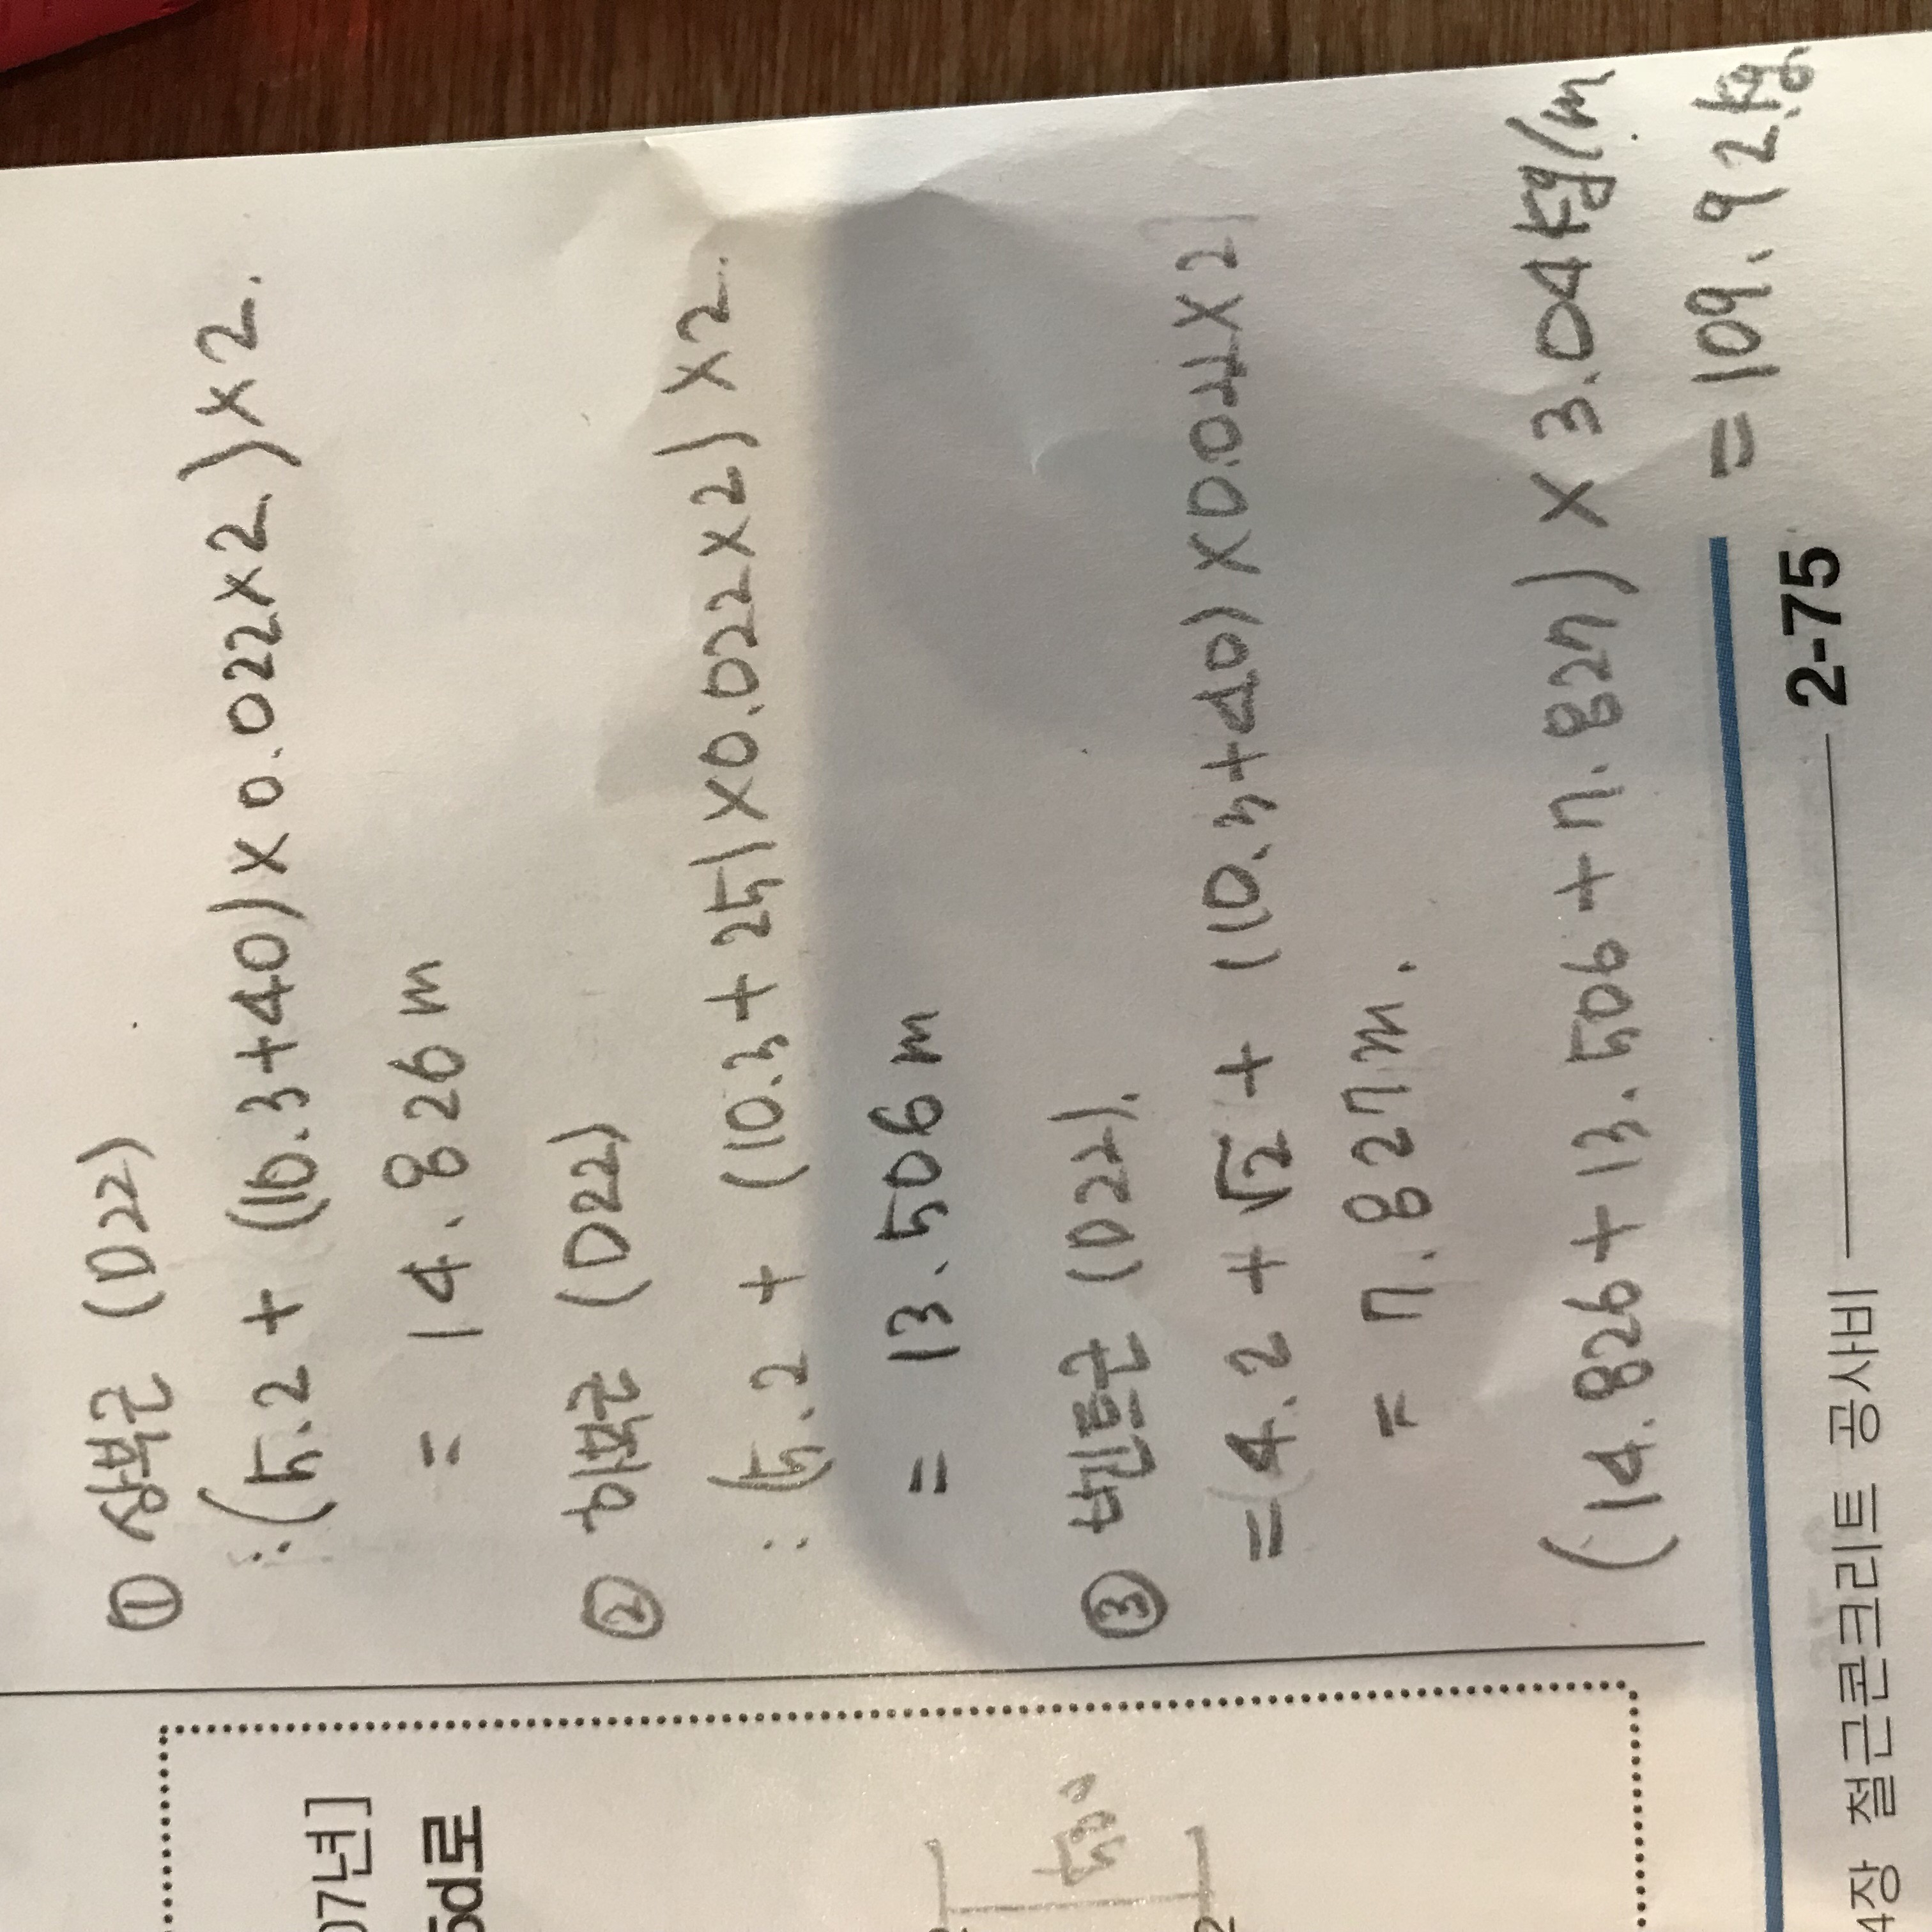 ① 상부근 (D22)
:(5.2 + (10.3+40)×0.022×2)×2.
= 14.826m
② 하부근 (D22)
:(5.2 + (10.3+25)×0.022×2)×2.
= 13.506m
③ 벤트근 (D22).
=(4.2+√2+(10.3+40)×0.022×2)
= 7.827m.
(14.826+13.506+7.827)×3.04kg/m
=109.92kg.
07년]
5d로
4장 철근콘크리트 공사비 2-75